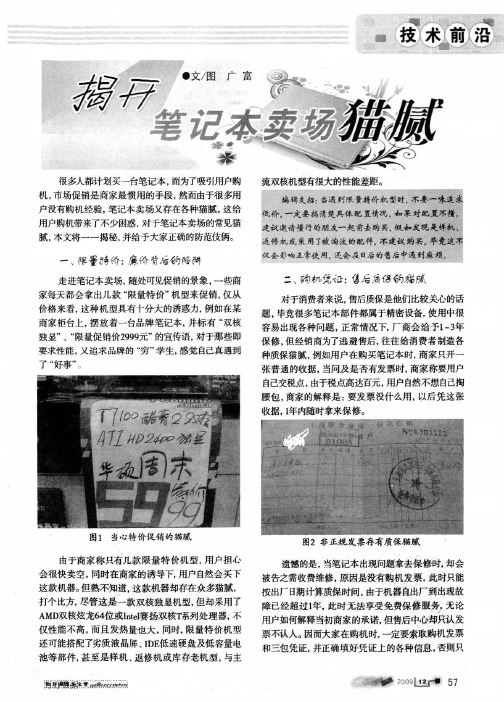 技术前沿
●文/图 广 富
揭开
笔记本卖场猫腻
很多人都计划买一台笔记本，而为了吸引用户购
机，市场促销是商家最惯用的手段，然而由于很多用
户没有购机经验，笔记本卖场又存在各种猫腻，这给
用户购机带来了不少困惑，对于笔记本卖场的常见猫
腻，本文将一一揭秘，并给予大家正确的防范伎俩。
一、限量特价：廉价背后的陷阱
走进笔记本卖场，随处可见促销的景象，一些商
家每天都会拿出几款“限量特价”机型来促销，仅从
价格来看，这种机型具有十分大的诱惑力，例如在某
商家柜台上，摆放着一台品牌笔记本，并标有“双核
独显”、“限量促销价2999元”的宣传语，对于那些即
要求性能，又追求品牌的“穷”学生，感觉自己真遇到
了“好事”。
T7100 酷睿2双核
ATI HD2400 独显
华硕 周末
特价
5999
图1 当心特价促销的猫腻
由于商家称只有几款限量特价机型，用户担心
会很快卖空，同时在商家的诱导下，用户自然会买下
这款机器。但熟不知道，这款机器却存在众多猫腻，
打个比方，尽管这是一款双核独显机型，但却采用了
AMD双核炫龙64位或Intel赛扬双核T系列处理器，不
仅性能不高，而且发热量也大，同时，限量特价机型
还可能搭配了劣质液晶屏、IDE低速硬盘及低容量电
池等部件，甚至是样机、返修机或库存老机型，与主
流双核机型有很大的性能差距。
编辑支招：当遇到限量特价机型时，不要一味追求
低价，一定要搞清楚具体配置情况，如果对配置不懂，
建议邀请懂行的朋友一起前去购买，假如发现是样机、
返修机或采用了被淘汰的配件，不建议购买，毕竟这不
仅会影响正常使用，还会在日后的售后中遇到麻烦。
二、购机凭证：售后质保的猫腻
对于消费者来说，售后质保是他们比较关心的话
题，毕竟很多笔记本部件都属于精密设备，使用中很
容易出现各种问题，正常情况下，厂商会给予1~3年
保修，但经销商为了逃避售后，往往给消费者制造各
种质保猫腻，例如用户在购买笔记本时，商家只开一
张普通的收据，当问及是否有发票时，商家称要用户
自己交税点，由于税点高达百元，用户自然不想自己掏
腰包，商家的解释是：要发票没什么用，以后凭这张
收据，1年内随时拿来保修。
图2 非正规发票存有质保猫腻
遗憾的是，当笔记本出现问题拿去保修时，却会
被告之需收费维修，原因是没有购机发票，此时只能
按出厂日期计算质保时间，由于机器自出厂到出现故
障已经超过1年，此时无法享受免费保修服务，无论
用户如何解释当初商家的承诺，但售后中心却只认发
票不认人。因而大家在购机时，一定要索取购机发票
和三包凭证，并正确填好凭证上的各种信息，否则只
2009 12 57